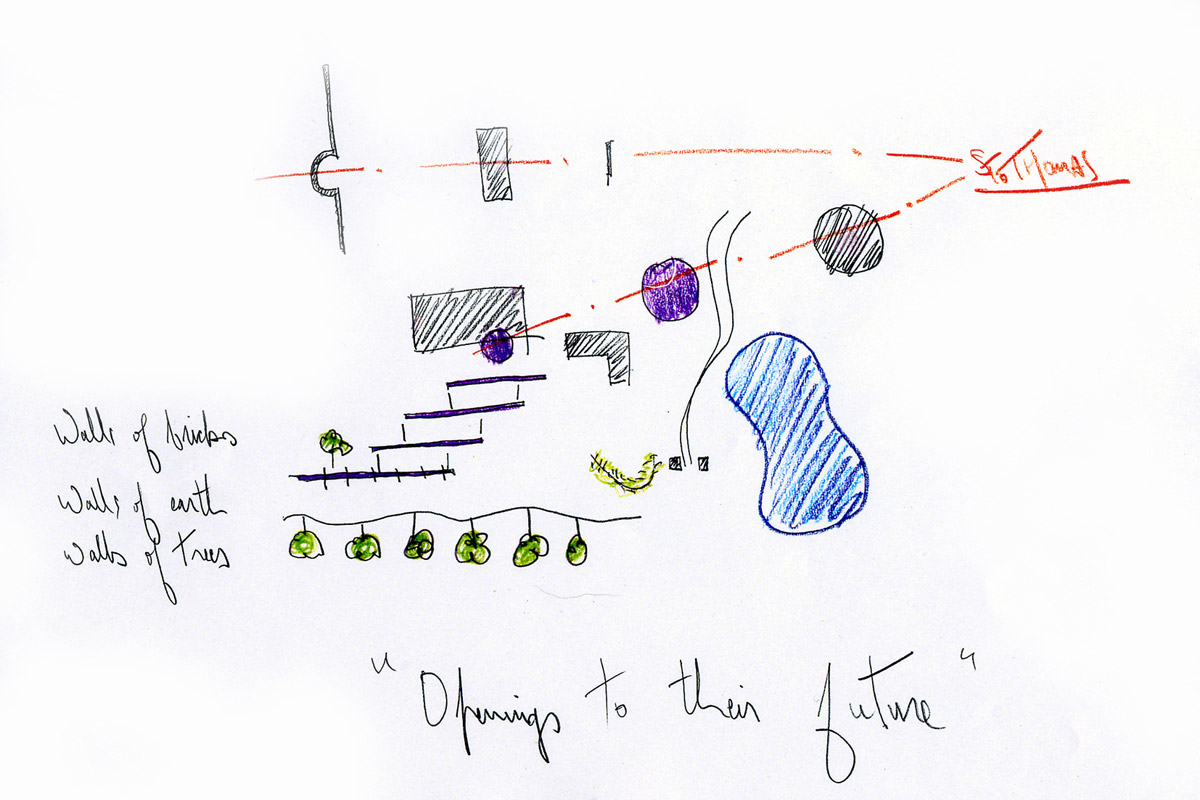 Sto Thomas
Walls of bricks
Walls of earth
Walls of trees
"Openings to their future"